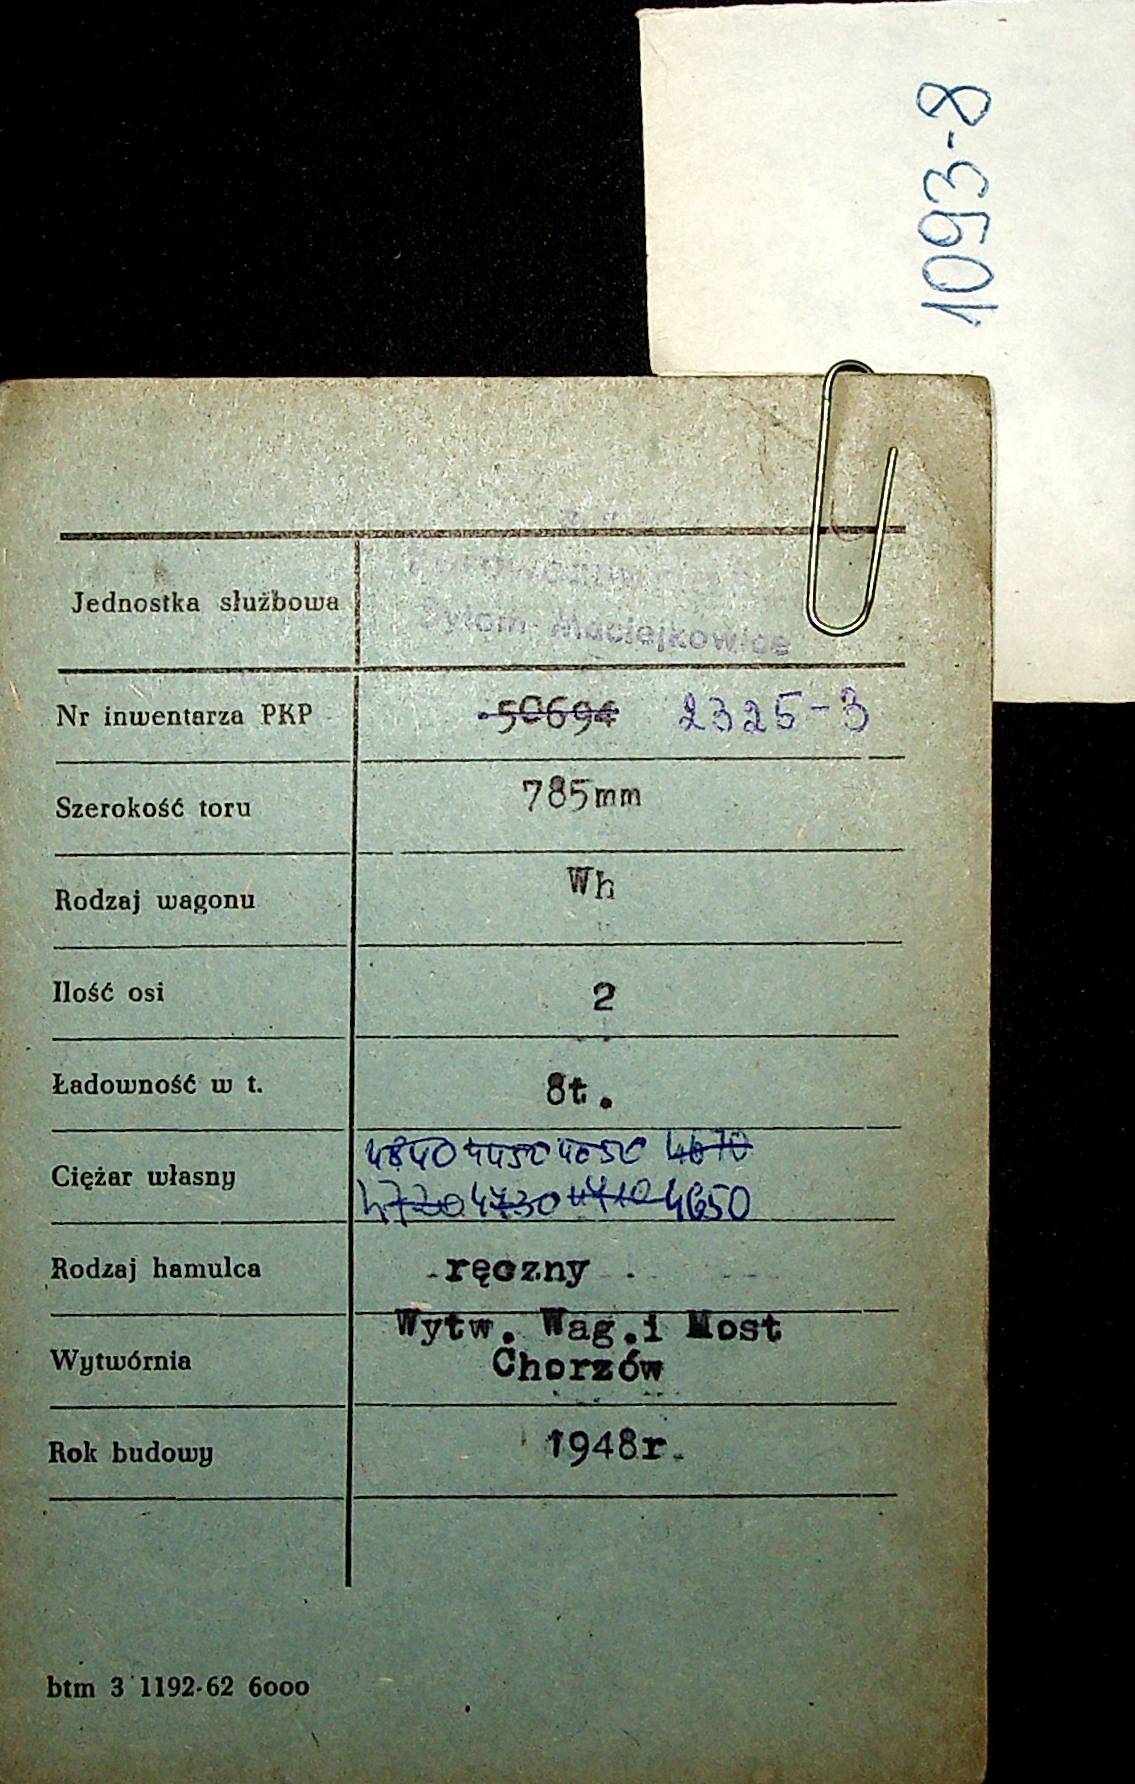 1093-8
Jednostka służbowa
Bytom-Maciejkowice
Nr inwentarza PKP 50694 2325-3
Szerokość toru 785mm
Rodzaj wagonu Wh
Ilość osi 2
Ładowność w t. 8t.
4840 4450 4650 4670
Ciężar własny
4720 4730 4710 4650
Rodzaj hamulca ręczny
Wytw. Wag.i Most
Wytwórnia
Chorzów
Rok budowy 1948r.
btm 3 1192-62 6000